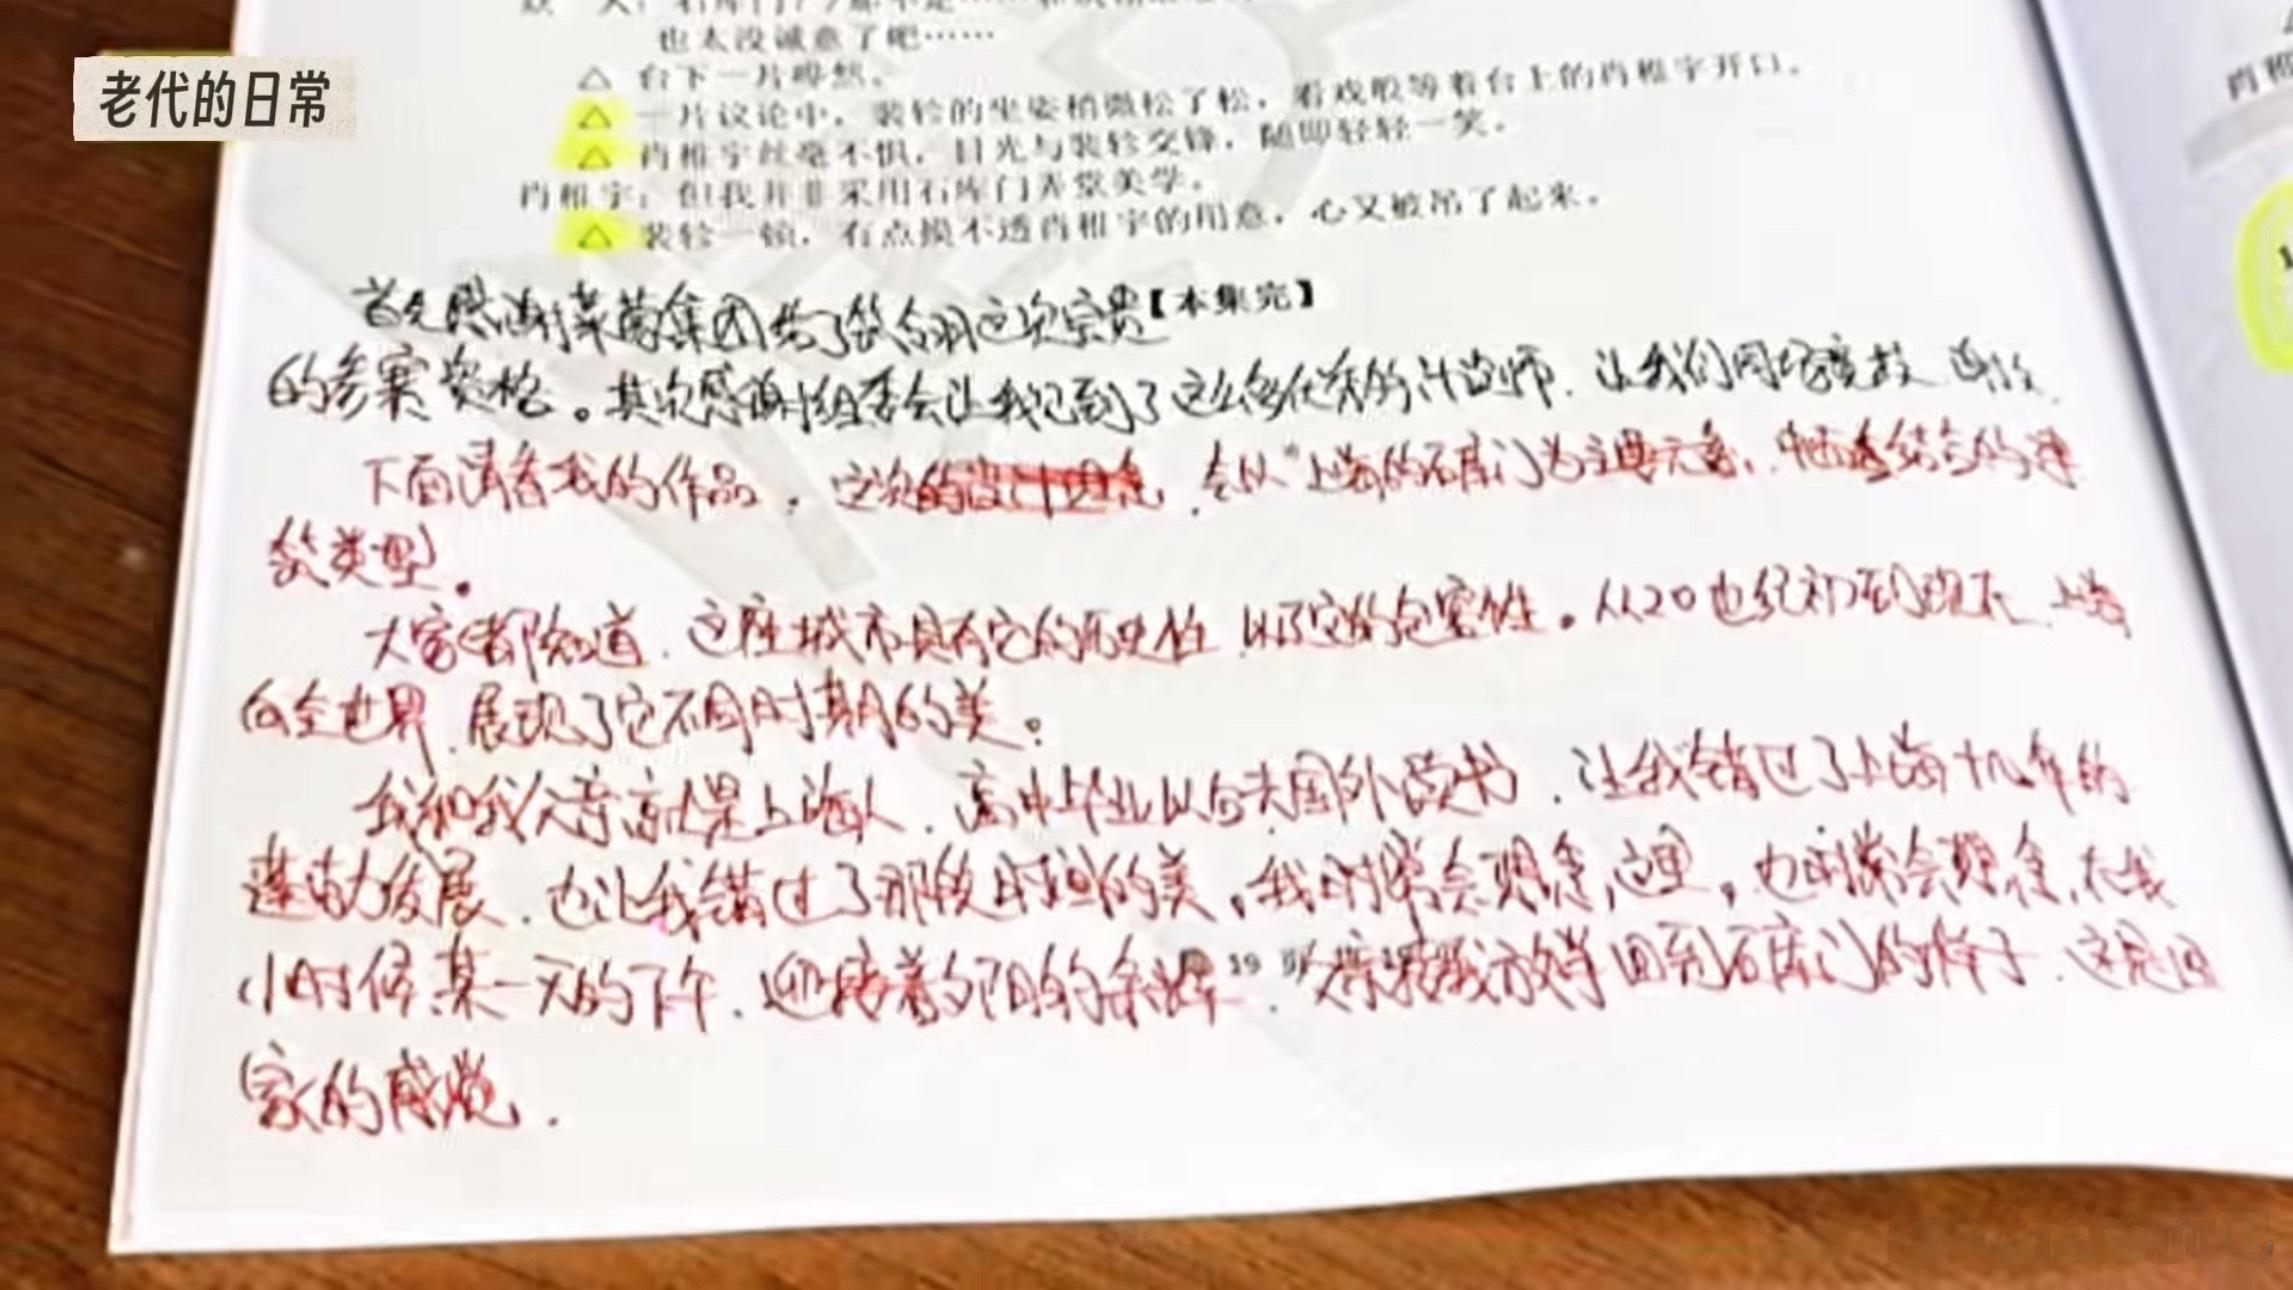 老代的日常
也太没诚意了吧……
△ 台下一片哗然。
△ 一片议论中，裴轸的坐姿稍微松了松，看戏般等着台上的肖稚宇开口。
△ 肖稚宇丝毫不惧，目光与裴轸交锋，随即轻轻一笑。
肖稚宇：但我并非采用石库门弄堂美学。
△ 裴轸一顿，有点摸不透肖稚宇的用意，心又被吊了起来。
【本集完】
首先感谢莱茵集团给了筑翎这次宝贵
的参赛资格。其次感谢组委会让我见到了这么多优秀的设计师，让我们同场竞技
下面请看我的作品，这次的设计理念，会以"上海的石库门为主要元素，中西结合的建
筑类型。
大家都知道，这座城市具有它的历史性以及它的包容性。从20世纪初到现在，上海
向全世界展现了它不同时期的美。
我和我父亲就是上海人，高中毕业以后去国外读书，让我错过了上海十几年的
蓬勃发展，也让我错过了那段时间的美。我时常会想念这里，也时常会想念，在我
小时候某一天的下午，迎接着夕阳的余晖，父亲接我放学回到石库门的样子，这是回
家的感觉。
19
肖稚